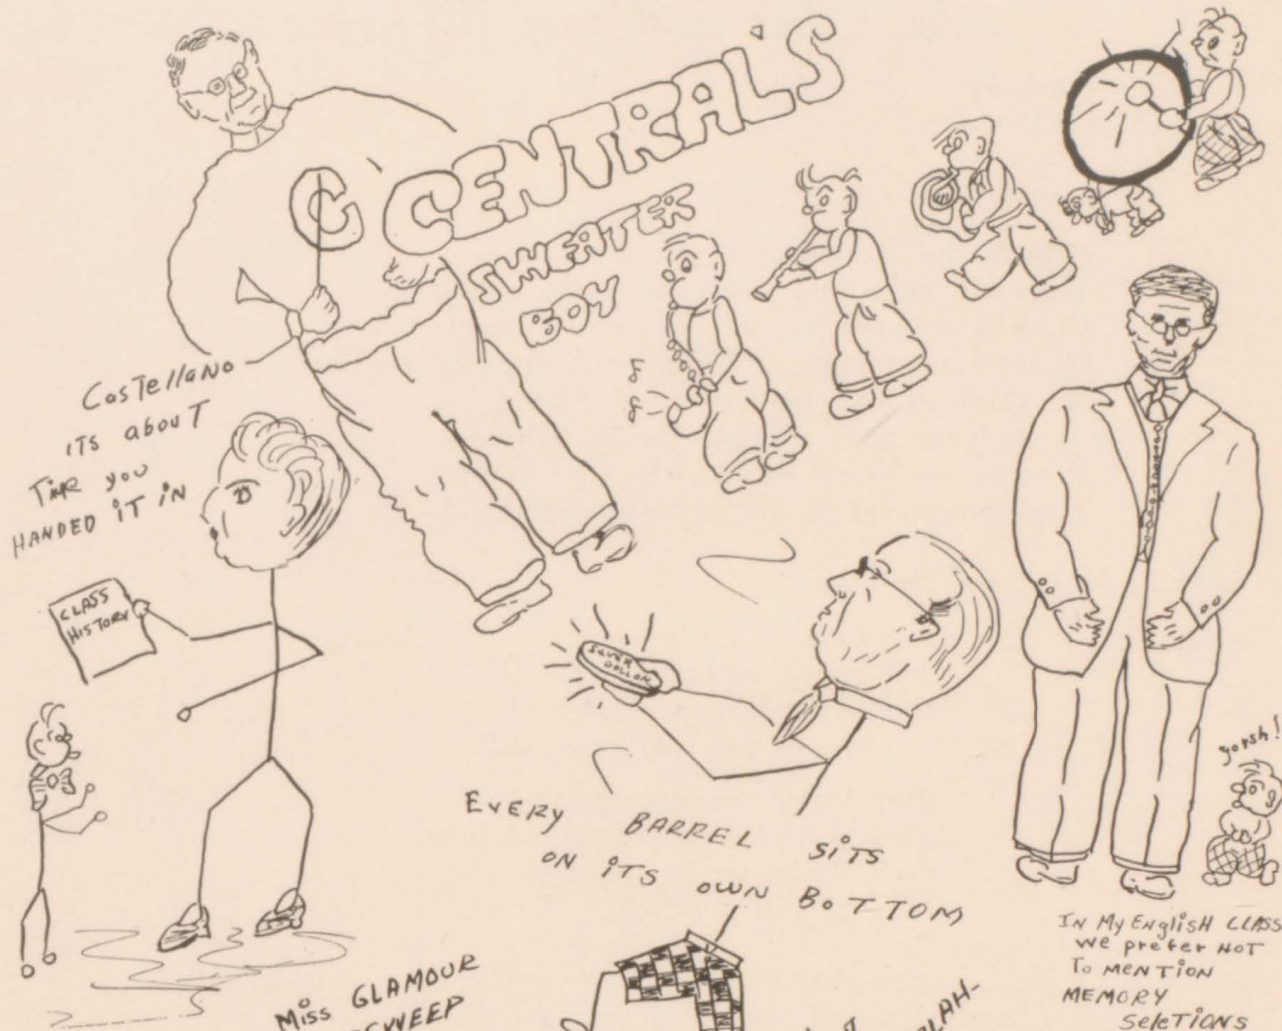 C CENTRAL'S
SWEATER
BOY
CosTellaNo
iTs abouT
Time you
HANDED iT iN
CLASS
HISTORY
SILVER
DOLLAR
EVERY BARREL SiTS
ON iTS OWN BOTTOM
gorsh!
IN My ENgliSH CLASS
we prefer NOT
To MENTION
MEMORY
SeleTiONS
Miss GLAMOUR